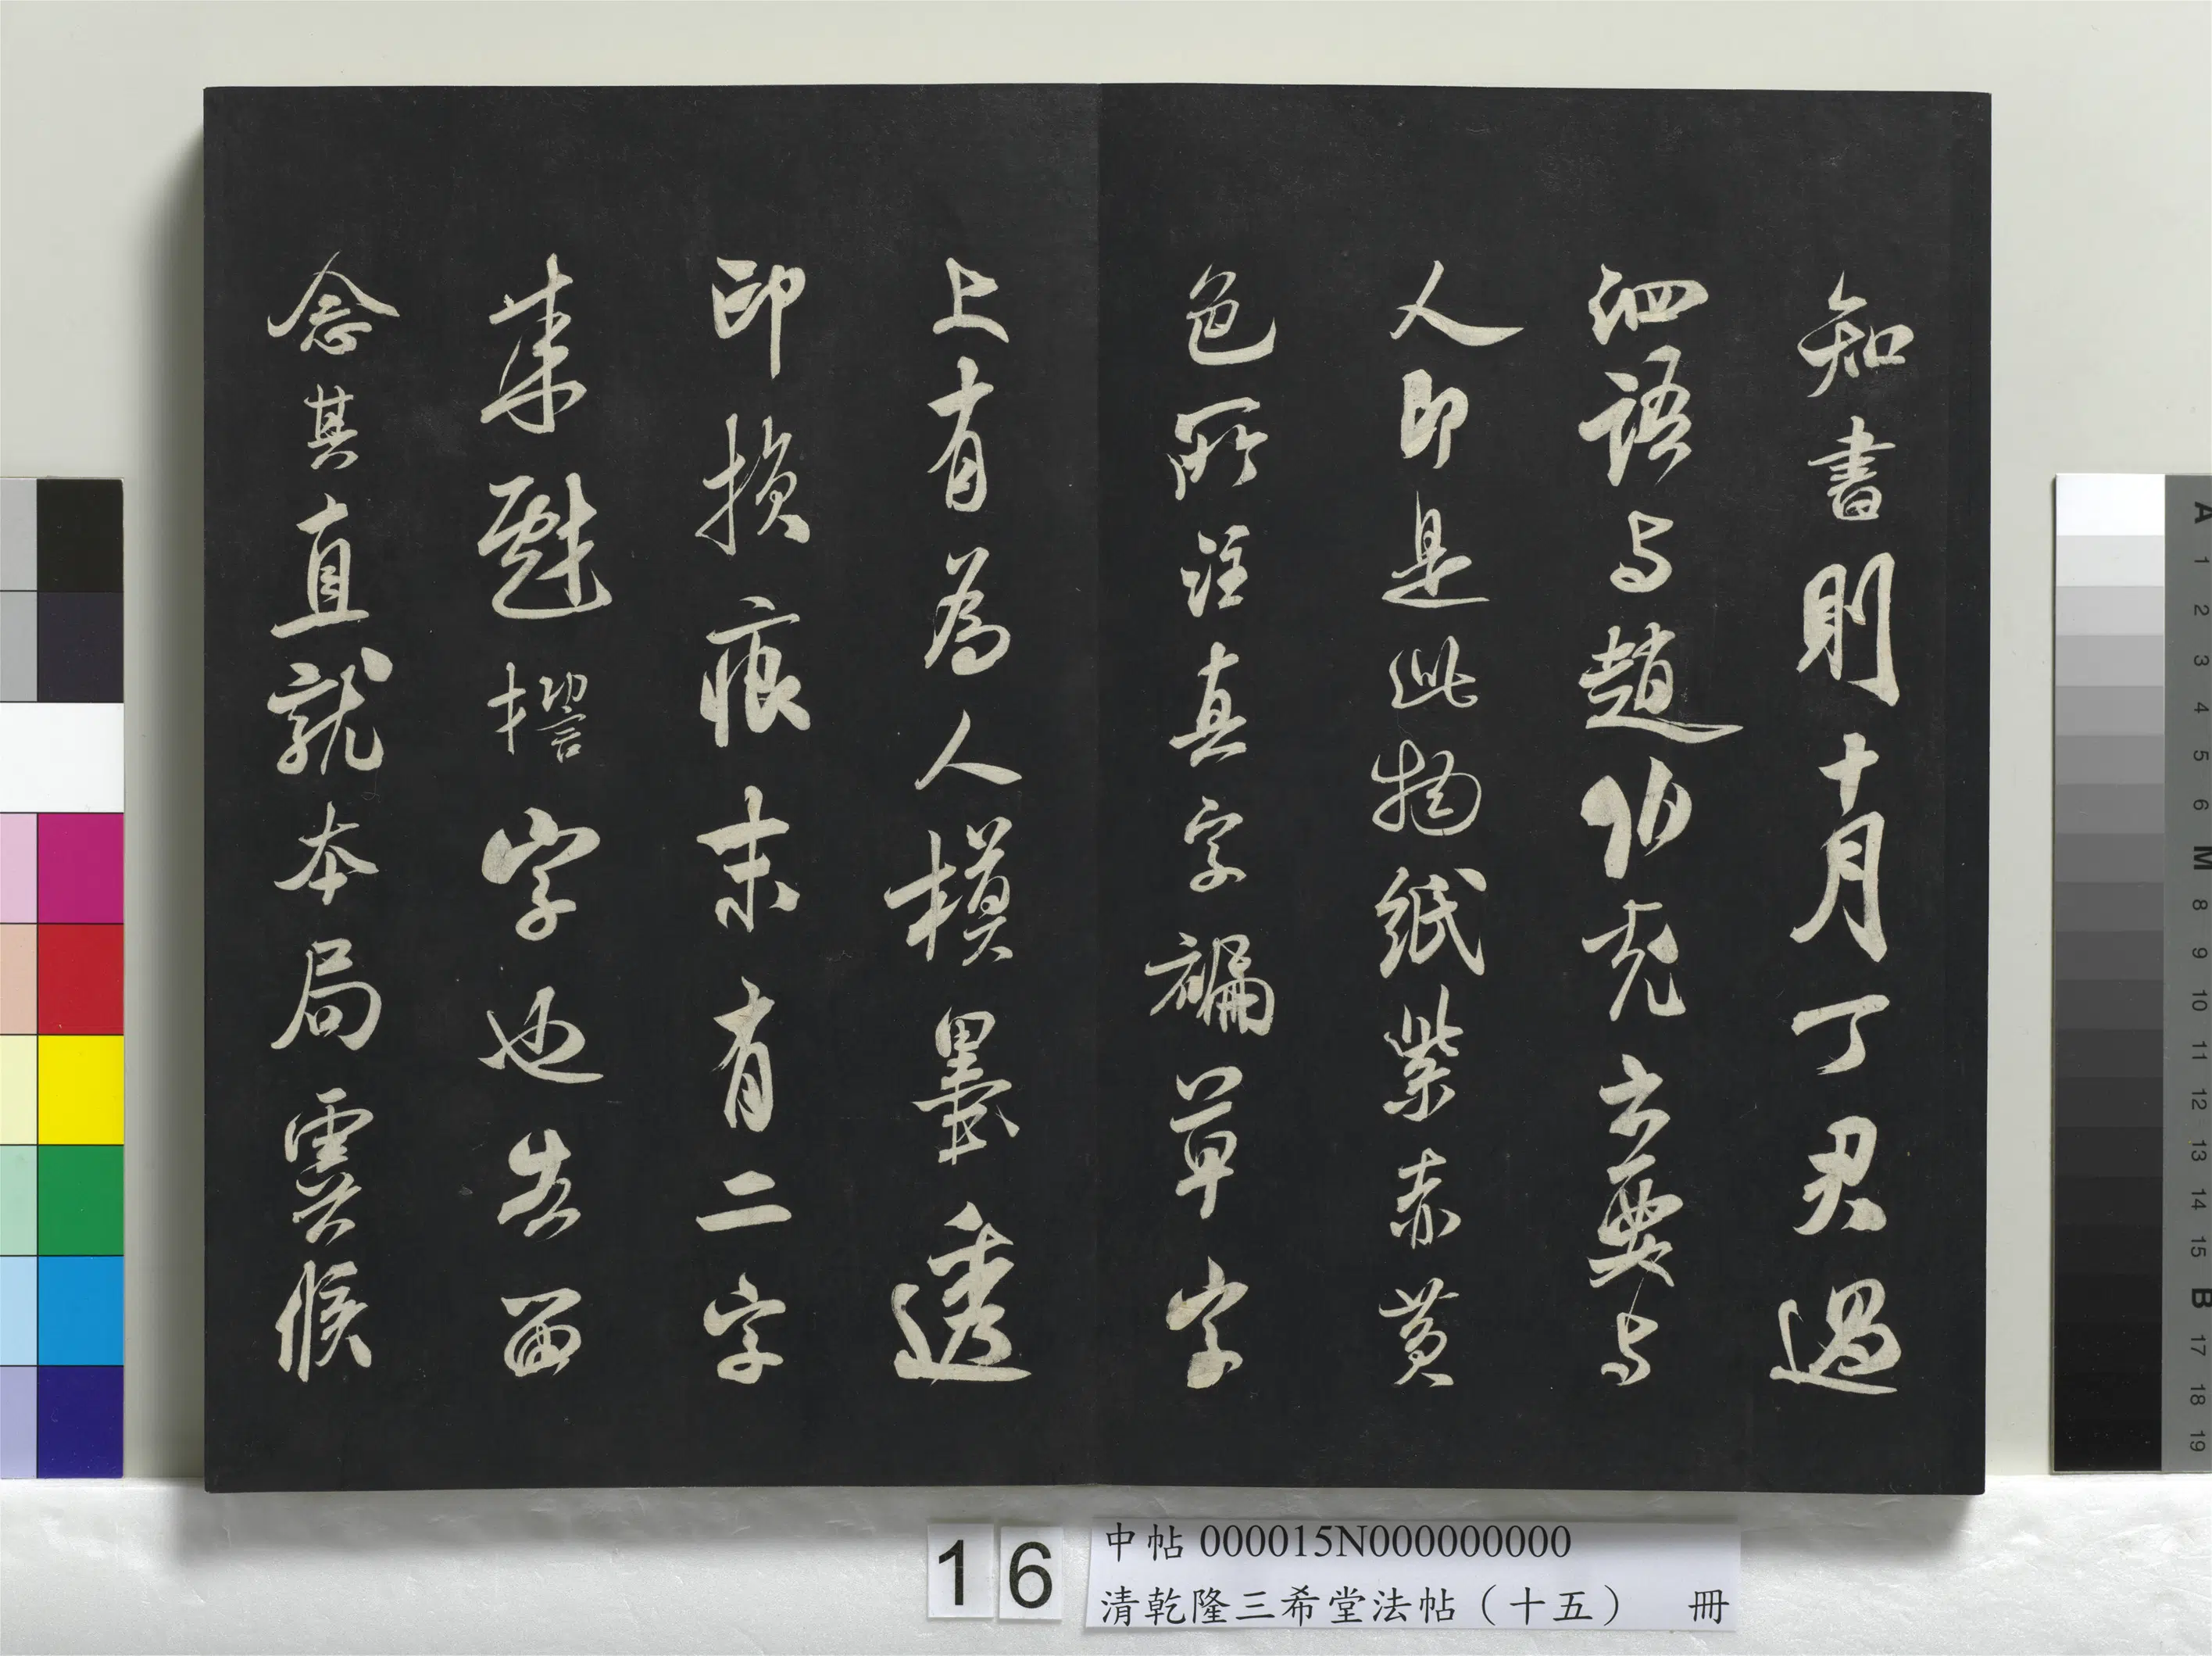 知書則十月丁君過
泗語與趙伯充云要與
人即是此物紙紫赤黃
色所注真字褊草字
上有為人模墨透
印損痕末有二字
來戲揩字也告留
念其直就本局虞候
16
中帖 000015N000000000
清乾隆三希堂法帖（十五） 冊
A 1 2 3 4 5 6 M 8 9 10 11 12 13 14 15 B 17 18 19